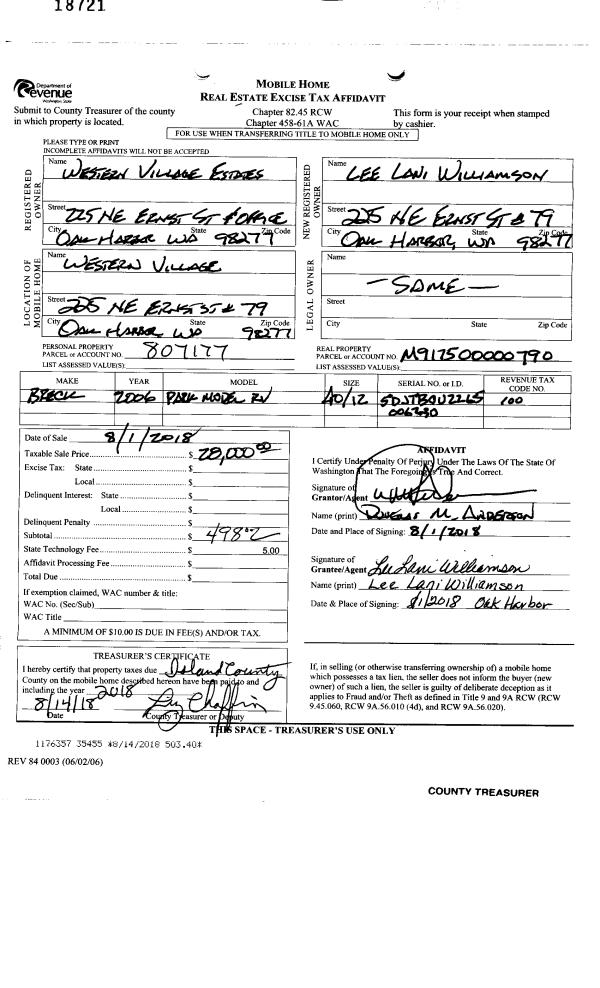 18721
Department of
Revenue
Washington State
MOBILE HOME
REAL ESTATE EXCISE TAX AFFIDAVIT
Submit to County Treasurer of the county
in which property is located.
Chapter 82.45 RCW
Chapter 458-61A WAC
This form is your receipt when stamped
by cashier.
FOR USE WHEN TRANSFERRING TITLE TO MOBILE HOME ONLY
PLEASE TYPE OR PRINT
INCOMPLETE AFFIDAVITS WILL NOT BE ACCEPTED
REGISTERED OWNER
Name WESTERN VILLAGE ESTATES
Street 225 NE ERNST ST # OFFICE
City State Zip Code
OAK HARBOR WA 98277
NEW REGISTERED OWNER
Name LEE LANI WILLIAMSON
Street 225 NE ERNST ST # 79
City State Zip Code
OAK HARBOR, WA 98277
LOCATION OF MOBILE HOME
Name WESTERN VILLAGE
Street 225 NE ERNST ST # 79
City State Zip Code
OAK HARBOR WA 98277
LEGAL OWNER
Name
— SAME —
Street
City State Zip Code
PERSONAL PROPERTY
PARCEL or ACCOUNT NO. 807177
LIST ASSESSED VALUE(S):
REAL PROPERTY
PARCEL or ACCOUNT NO. M917500000790
LIST ASSESSED VALUE(S):
MAKE YEAR MODEL SIZE SERIAL NO. or I.D. REVENUE TAX CODE NO.
2006 PARK MODEL RV 40/12 100
Date of Sale 8/1/2018
Taxable Sale Price $ 28,000.00
Excise Tax: State $
Local $
Delinquent Interest: State $
Local $
Delinquent Penalty $
Subtotal $ 498.40
State Technology Fee $ 5.00
Affidavit Processing Fee $
Total Due $
If exemption claimed, WAC number & title:
WAC No. (Sec/Sub)
WAC Title
A MINIMUM OF $10.00 IS DUE IN FEE(S) AND/OR TAX.
AFFIDAVIT
I Certify Under Penalty Of Perjury Under The Laws Of The State Of
Washington That The Foregoing Is True And Correct.
Signature of
Grantor/Agent
Name (print) DOUGLAS M. ANDERSON
Date and Place of Signing: 8/1/2018
Signature of
Grantee/Agent Lee Lani Williamson
Name (print) Lee Lani Williamson
Date & Place of Signing: 8/1/2018 Oak Harbor
TREASURER'S CERTIFICATE
I hereby certify that property taxes due Island County
County on the mobile home described hereon have been paid to and
including the year 2018
8/14/18
Date County Treasurer or Deputy
If, in selling (or otherwise transferring ownership of) a mobile home
which possesses a tax lien, the seller does not inform the buyer (new
owner) of such a lien, the seller is guilty of deliberate deception as it
applies to Fraud and/or Theft as defined in Title 9 and 9A RCW (RCW
9.45.060, RCW 9A.56.010 (4d), and RCW 9A.56.020).
THIS SPACE - TREASURER'S USE ONLY
1176357 35455 *8/14/2018 503.40*
REV 84 0003 (06/02/06)
COUNTY TREASURER